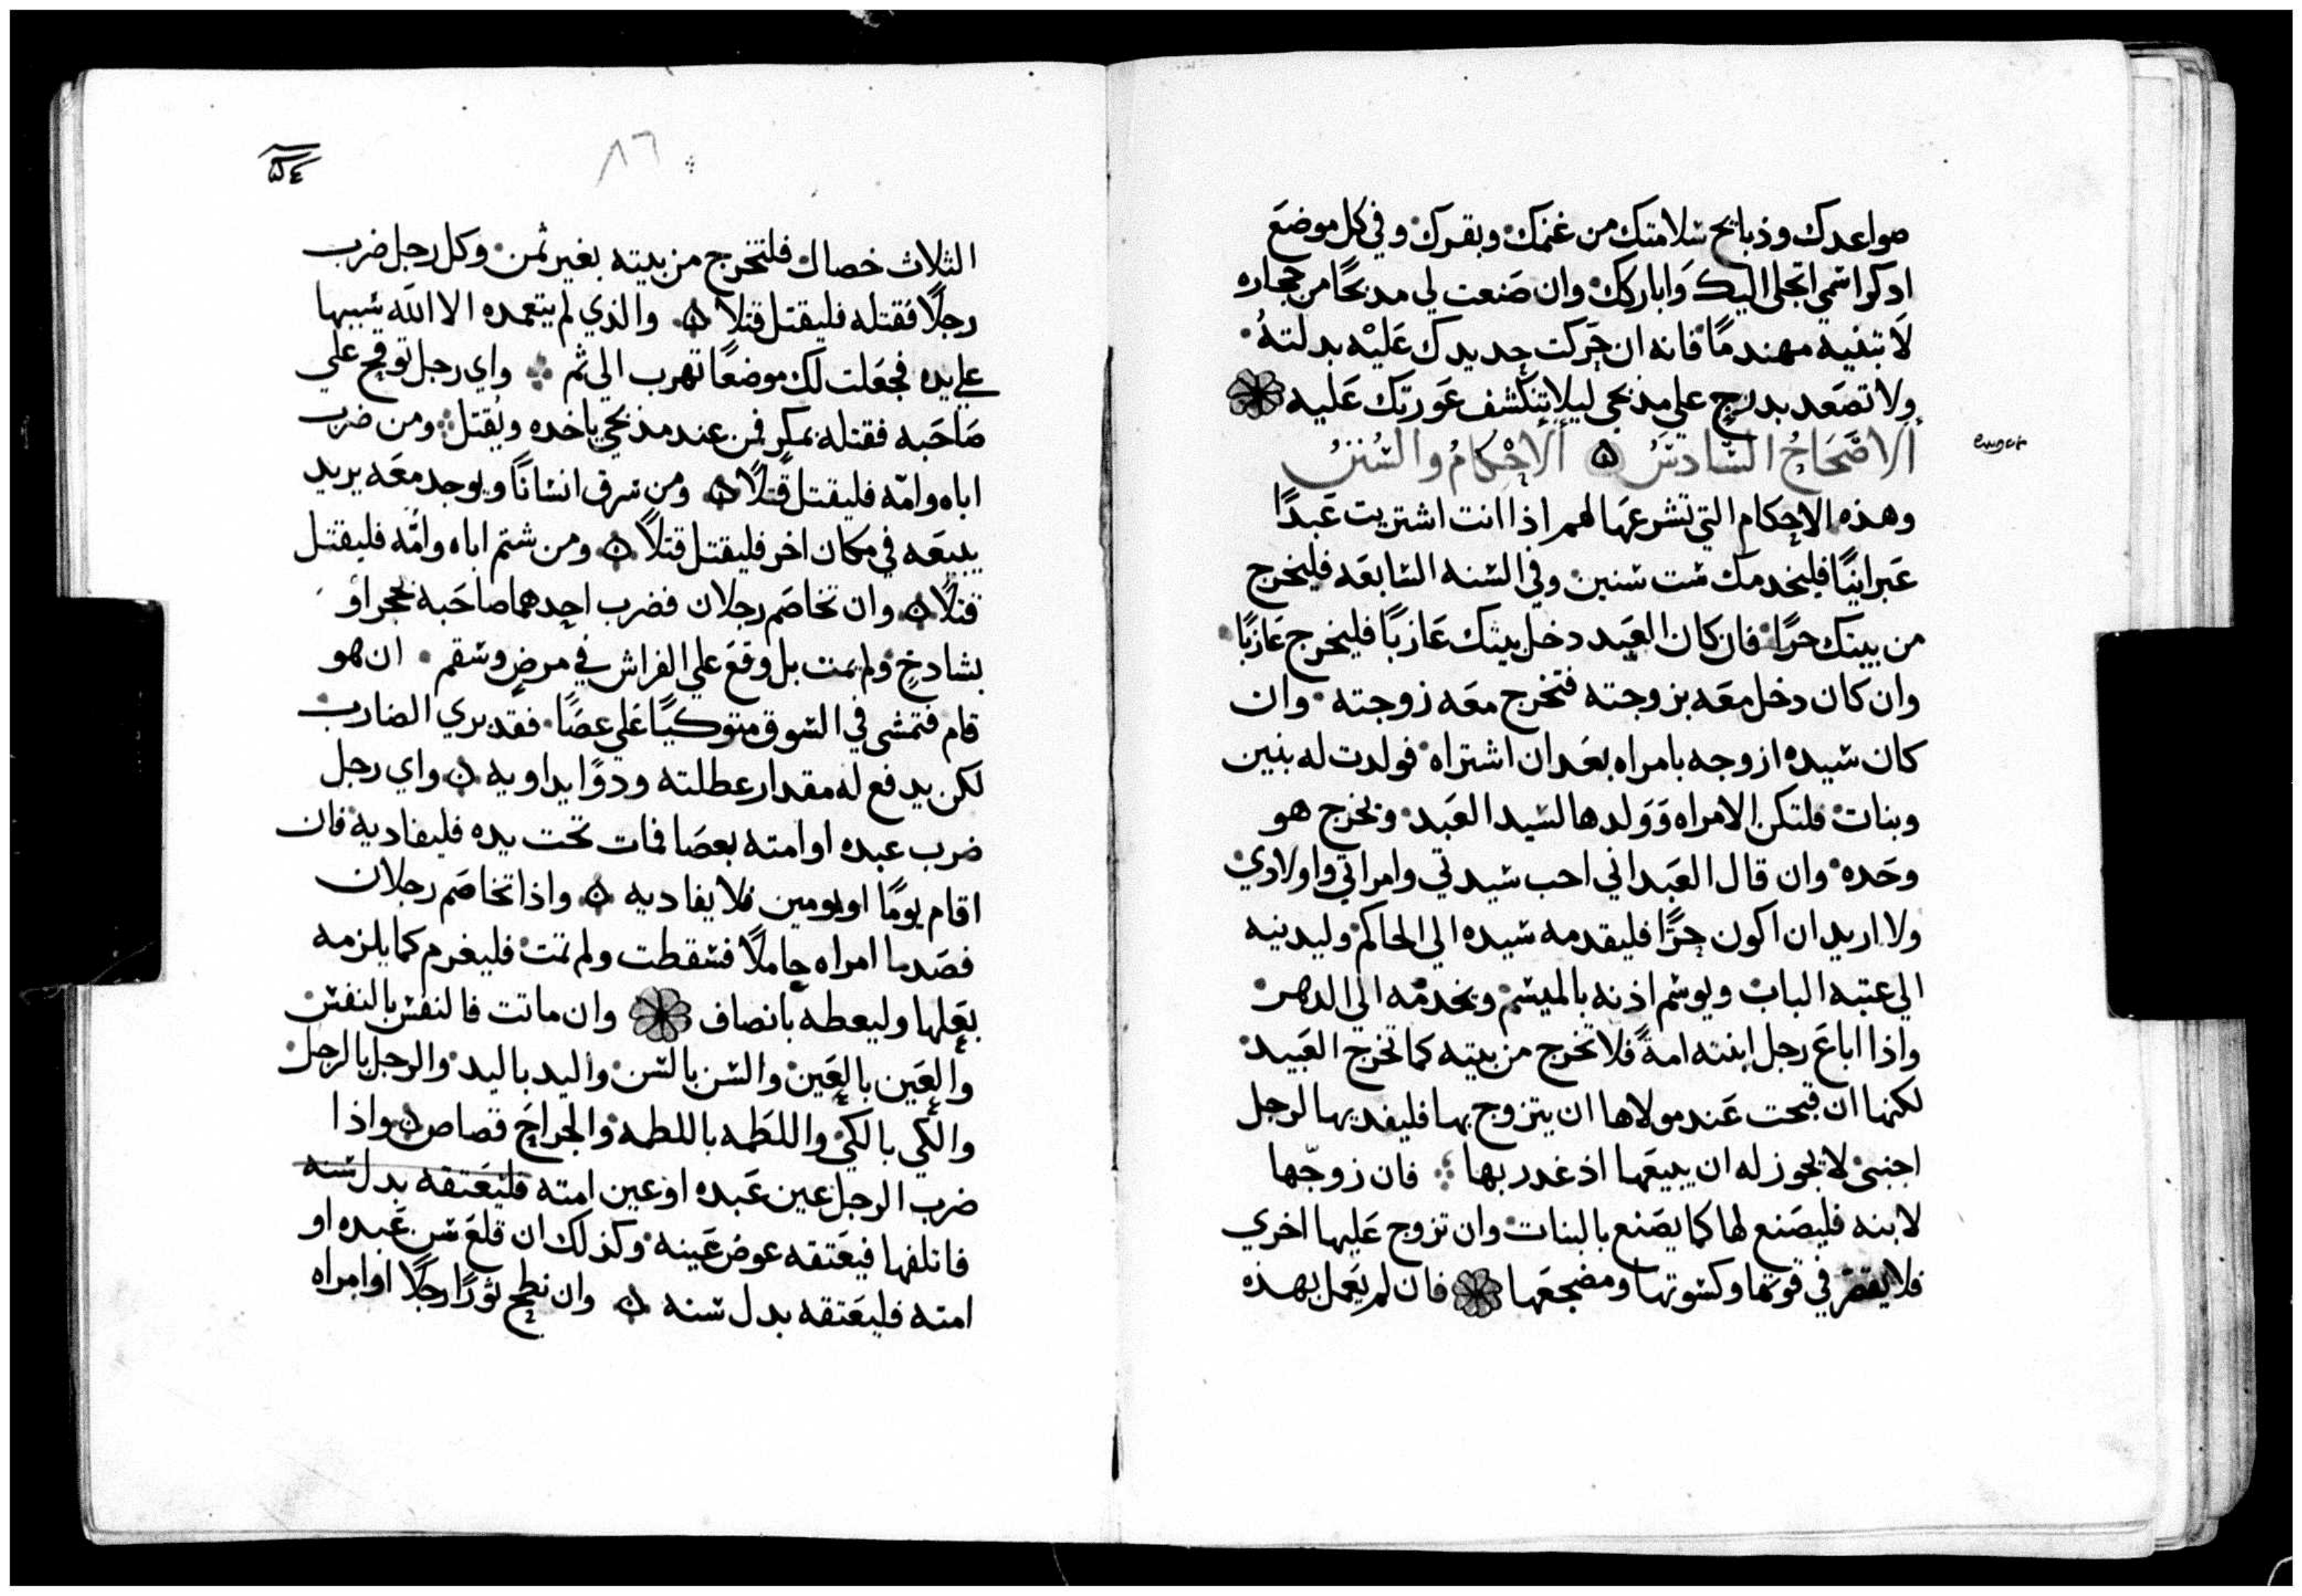 صواعدك وذبايح سلامتك من غنمك وبقرك وفي كل موضع
ادكر اسمي اتجلى اليك واباركك وان صنعت لي مدبحًا من حجاره
لا تبنيه مهندمًا فانه ان حركت حديدك عليه بدلته
ولا تصعد بدرج علي مذبحي ليلا تنكشف عورتك عليه
الاصحاح السادس الاحكام والسنن
وهذه الاحكام التي تشرعها لهم اذا انت اشتريت عبدًا
عبرانيًا فليخدمك ست سنين وفي السنه السابعه فليخرج
من بيتك حرًا فان كان العبد دخل بيتك عازبًا فليخرج عازبًا
وان كان دخل معه بزوجته فتخرج معه زوجته وان
كان سيده ازوجه بامراه بعد ان اشتراه فولدت له بنين
وبنات فلتكن الامراه وولدها لسيد العبد ويخرج هو
وحده وان قال العبد اني احب سيدتي وامراتي واولادي
ولا اريد ان اكون حرًا فليقدمه سيده الي الحاكم وليدنيه
الي عتبه الباب ويوسم اذنه بالميسم ويخدمه الي الدهر
واذا اباع رجل ابنته امةً فلا تخرج من بيته كما تخرج العبيد
لكنها ان قبحت عند مولاها ان يتزوج بها فليفديها لرجل
اجنبي لا يجوز له ان يبيعها اذ غدر بها فان زوّجها
لابنه فليصنع لها كما يصنع بالبنات وان تزوج عليها اخري
فلا يقصر في قوتها وكسوتها ومضجعها فان لم يعمل بهذه
٥٤
٨٦
الثلاث خصال فلتخرج من بيته بغير ثمن وكل رجل ضرب
رجلًا فقتله فليقتل قتلا والذي لم يتعمده الا الله سببها
علي يده فجعلت لك موضعًا تهرب الي ثم واي رجل توقح علي
صاحبه فقتله بمكر فمن عند مذبحي ياخده ويُقتل ومن ضرب
اباه وامّه فليقتل قتلًا ومن سرق انسانًا ويوجد معه يريد
يبيعه في مكان اخر فليقتل قتلًا ومن شتم اباه وامّه فليقتل
قتلًا وان تخاصم رجلان فضرب احدهما صاحبه بحجر او
بشادخٍ ولم يمت بل وقع علي الفراش في مرضٍ وسقم ان هو
قام فتمشي في السوق متوكيًا علي عصًا فقد بري الضارب
لكن يدفع له مقدار عطلته ودوًا يداويه واي رجل
ضرب عبده او امته بعصا فمات تحت يده فليفاديه فان
اقام يومًا او يومين فلا يفاديه واذا تخاصم رجلان
فصدما امراه حاملًا فسقطت ولم تمت فليغرم كما يلزمه
بعلها وليعطه بانصاف وان ماتت فالنفس بالنفس
والعين بالعين والسن بالسن واليد باليد والرجل بالرجل
والكي بالكي واللطمه باللطمه والجراح قصاص واذا
ضرب الرجل عين عبده او عين امته فليعتقه بدل سنه
فاتلفها فيعتقه عوض عينه وكذلك ان قلع سن عبده او
امته فليعتقه بدل سنه وان نطح ثورًا رجلًا او امراه